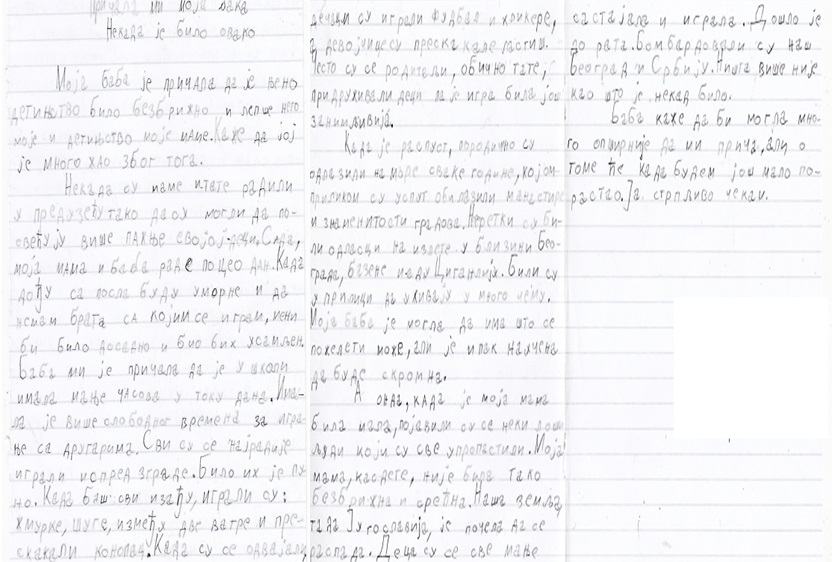 Причала ми моја бака
Некада је било овако
Моја баба је причала да је њено
детињство било безбрижно и лепше него
моје и детињство моје маме. Каже да јој
је много жао због тога.
Некада су маме и тате радили
у предузећу тако да су могли да по-
свећују више пажње својој деци. Сада,
моја мама и баба раде по цео дан. Када
дођу са посла буду уморне и да
немам брата са којим се играм, мени
би било досадно и био бих усамљен.
Баба ми је причала да је у школи
имала мање часова у току дана. Има-
ла је више слободног времена за игра-
ње са другарима. Сви су се најрадије
играли испред зграде. Било их је пу-
но. Када баш сви изађу, играли су:
жмурке, шуге, између две ватре и пре-
скакали конопац. Када су се одвајали,
дечаци су играли фудбал и кликере,
а девојчице су прескакале ластиш.
Често су се родитељи, обично тате,
придруживали деци па је игра била још
занимљивија.
Када је распуст, породично су
одлазили на море сваке године, којом
приликом су успут обилазили манастире
и знаменитости градова. Неретки су би-
ли одласци на излете у близини Бео-
града, базене и аду Циганлију. Били су
у прилици да уживају у много чему.
Моја баба је могла да има што се
пожелети може, али је ипак научена
да буде скромна.
А онда, када је моја мама
била мала, појавили су се неки лоши
људи који су све упропастили. Моја
мама, као дете, није била тако
безбрижна и срећна. Наша земља,
тада Југославија, је почела да се
распада. Деца су се све мање
састајала и играла. Дошло је
до рата. Бомбардовали су наш
Београд и Србију. Ништа више није
као што је некад било.
Баба каже да би могла мно-
го опширније да ми прича, али о
томе ће када будем још мало по-
растао. Ја стрпљиво чекам.